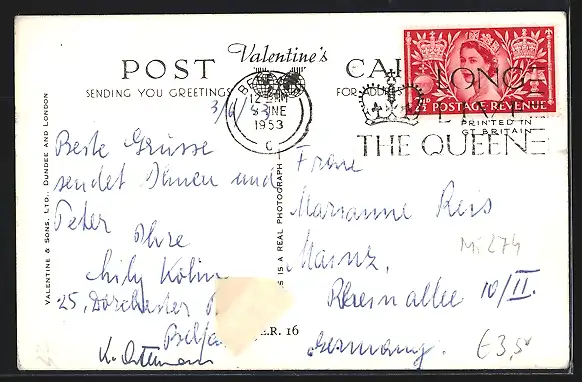 Valentine's
POST CA
SENDING YOU GREETINGS FOR ADDRESS
3/6/53
12 PM
3 JNE
1953
C
LONG
LIVE
THE QUEEN
2½D POSTAGE REVENUE
PRINTED IN
GT BRITAIN
VALENTINE & SONS, LTD., DUNDEE AND LONDON
S IS A REAL PHOTOGRAPH
Beste Grüsse
sendet Ihnen und
Peter
Ihre
Lily Kölin
25, Dorchester
Belfa
E.R. 16
Frau
Marianne Reis
Mainz,
Rheinallee 10/II.
Germany.
Mi 274
€3,50